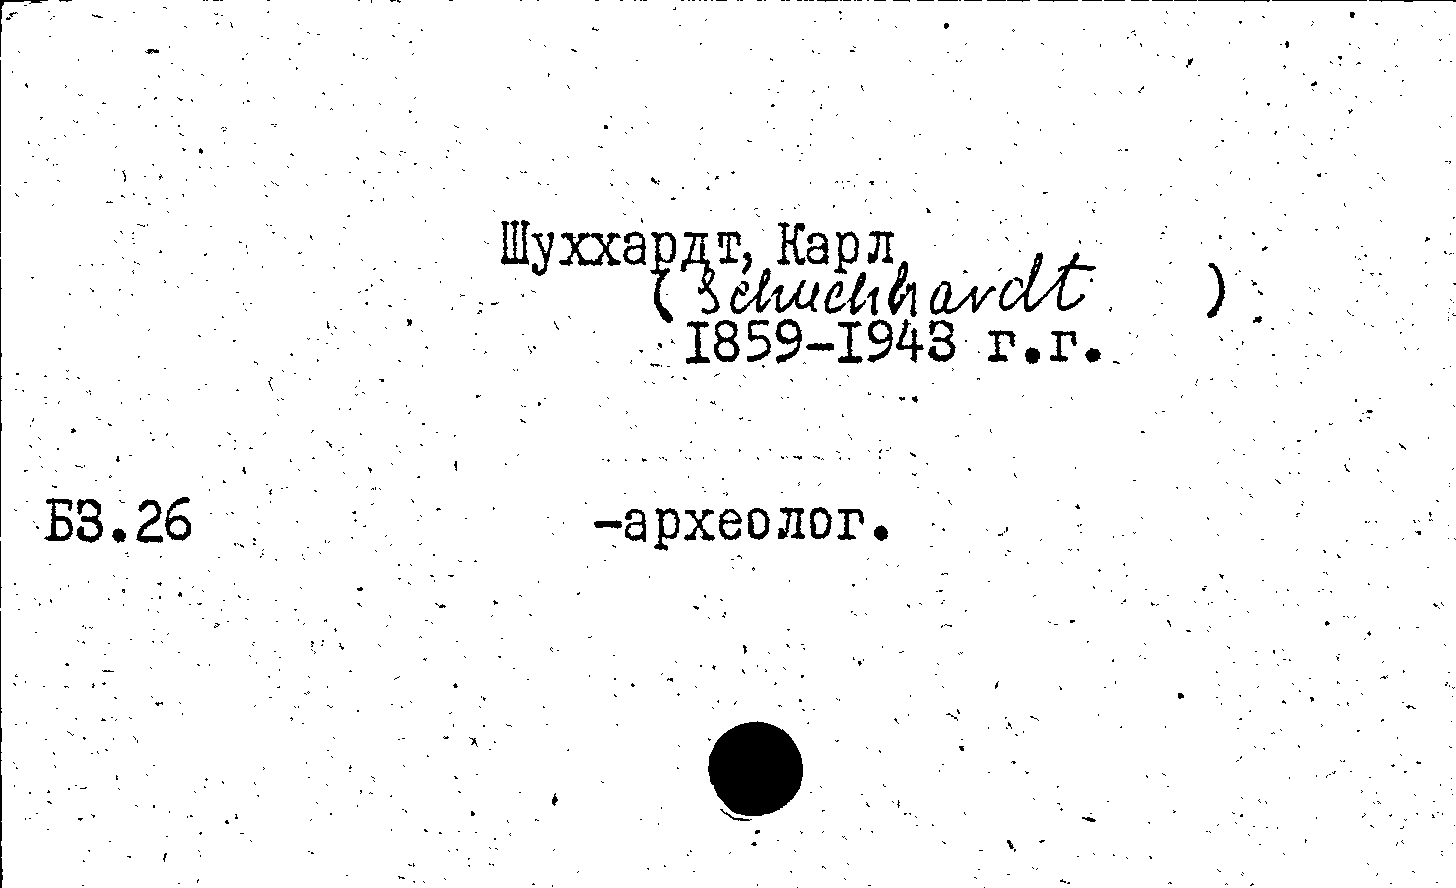 Шуххардт, Карл
(Schuchhardt )
1859-1943 г.г.
БЗ.26 -археолог.